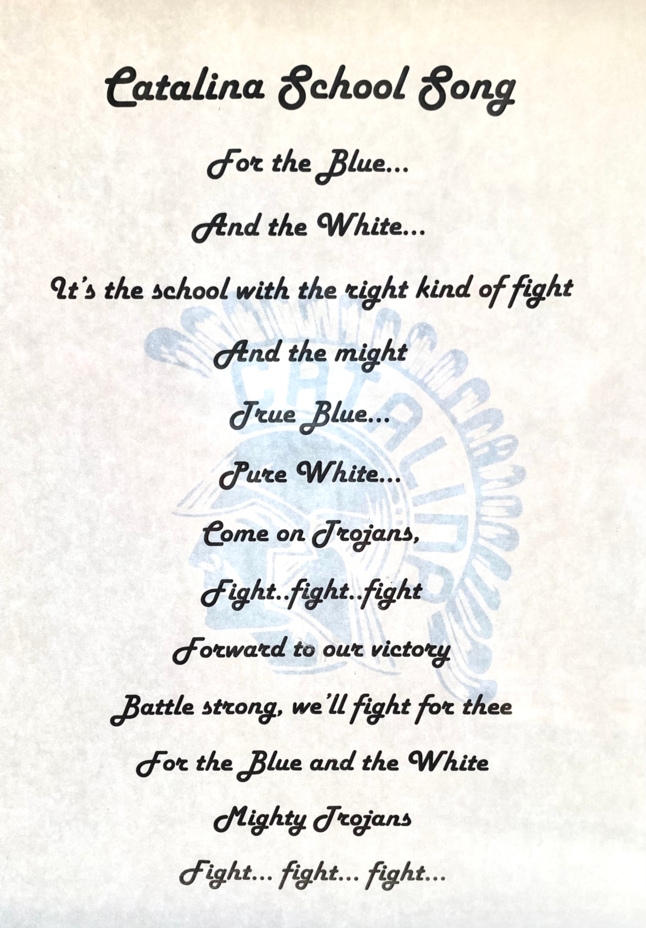 Catalina School Song
For the Blue...
And the White...
It's the school with the right kind of fight
And the might
True Blue...
Pure White...
Come on Trojans,
Fight..fight..fight
Forward to our victory
Battle strong, we'll fight for thee
For the Blue and the White
Mighty Trojans
Fight... fight... fight...
CATALINA